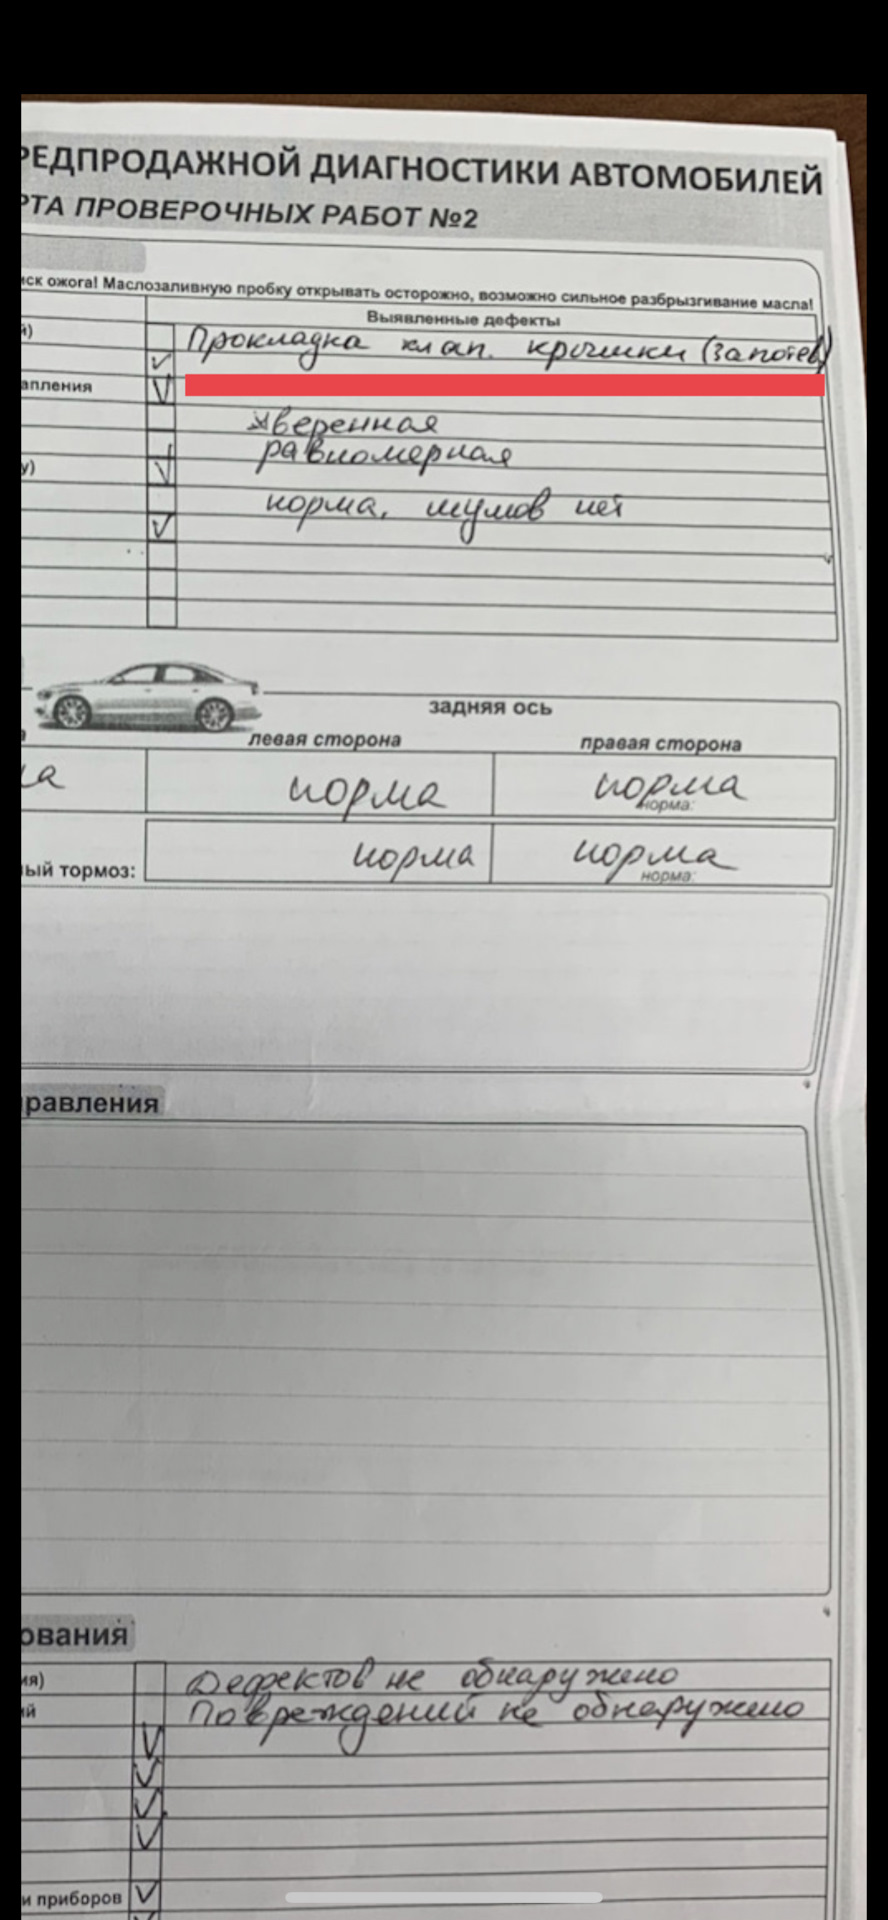 РЕДПРОДАЖНОЙ ДИАГНОСТИКИ АВТОМОБИЛЕЙ
РТА ПРОВЕРОЧНЫХ РАБОТ №2
иск ожога! Маслозаливную пробку открывать осторожно, возможно сильное разбрызгивание масла!
Выявленные дефекты
Прокладка клап. крышки (запотев)
апления
уверенная
равномерная
у)
норма, шумов нет
задняя ось
левая сторона
правая сторона
норма
норма
норма:
ый тормоз:
норма
норма
норма:
равления
ования
ия)
Дефектов не обнаружено
ий
Повреждений не обнаружено
и приборов